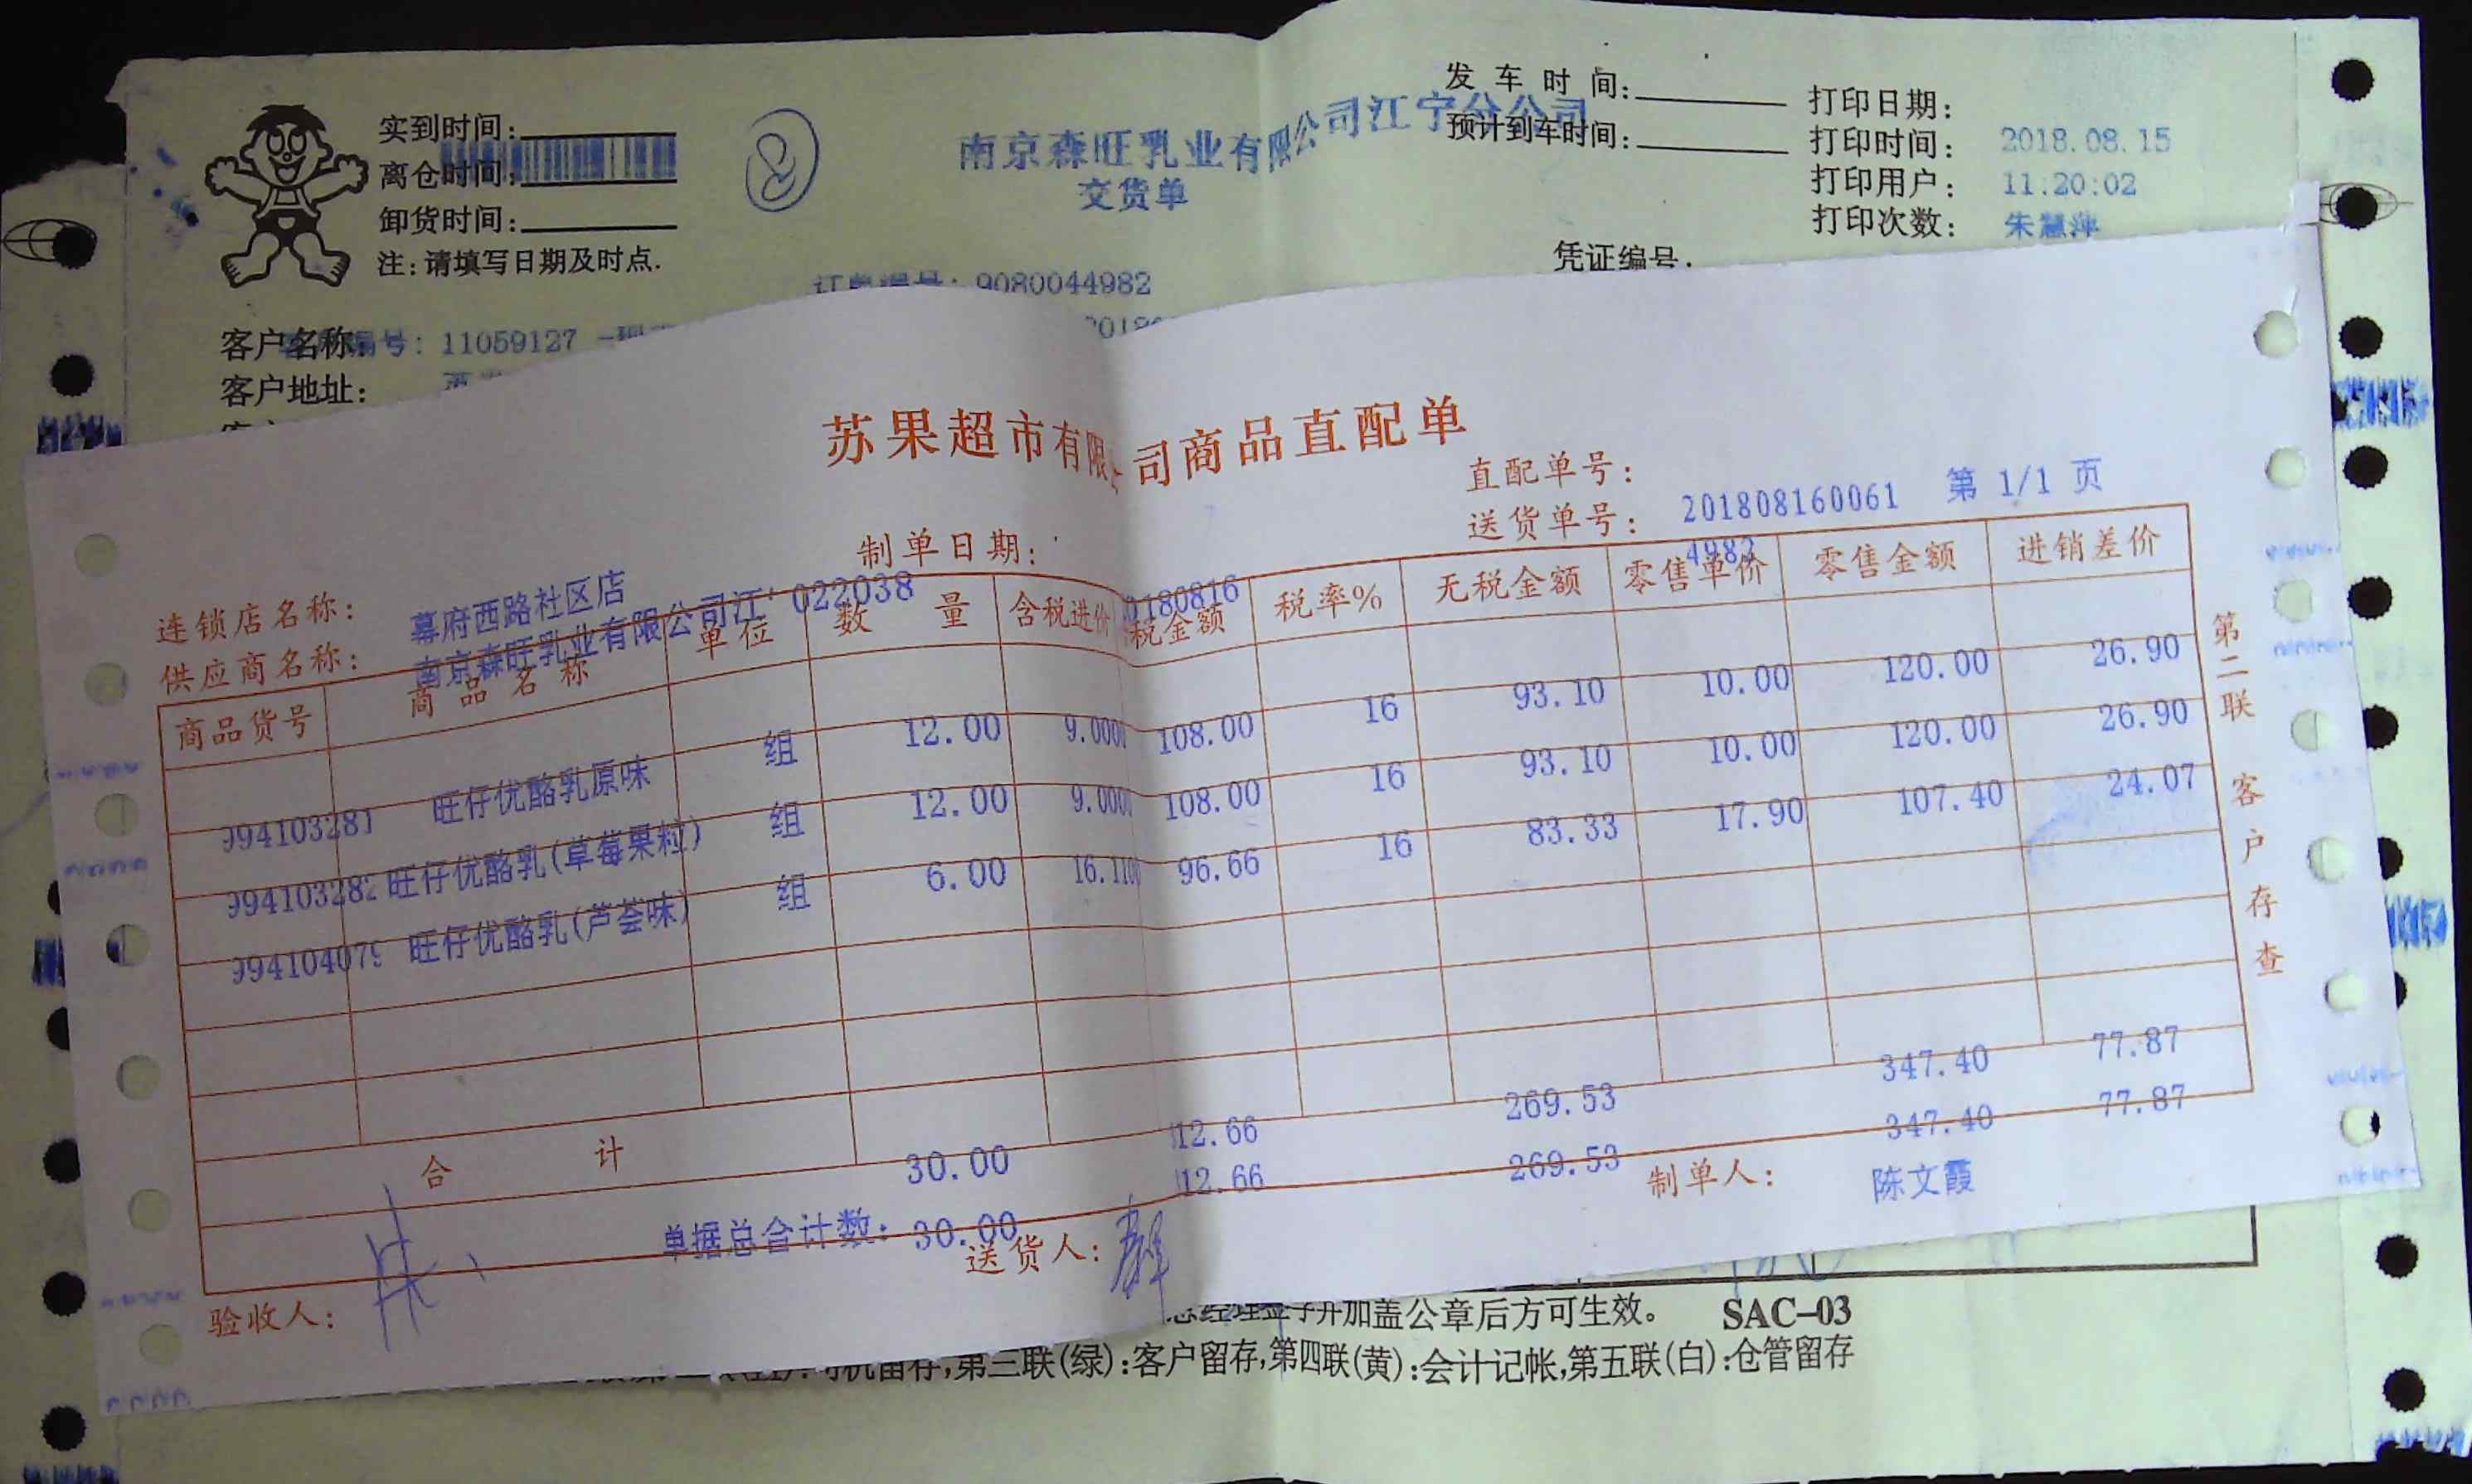 实到时间:
离仓时间:
卸货时间:
注:请填写日期及时点.
南京森旺乳业有限公司江宁分公司
交货单
发车时间:
预计到车时间:
打印日期:
打印时间: 2018.08.15
打印用户: 11:20:02
打印次数: 朱慧萍
凭证编号:
订单编号: 9080044982
客户名称: 编号: 11059127
客户地址:
苏果超市有限公司商品直配单
直配单号: 201808160061 第 1/1 页
送货单号: 4982
制单日期: 20180816
连锁店名称: 幕府西路社区店
供应商名称: 南京森旺乳业有限公司江 022038
商品货号 商品名称 单位 数量 含税进价 税金额 税率% 无税金额 零售单价 零售金额 进销差价
994103281 旺仔优酪乳原味 组 12.00 9.0000 108.00 16 93.10 10.00 120.00 26.90
994103282 旺仔优酪乳(草莓果粒) 组 12.00 9.0000 108.00 16 93.10 10.00 120.00 26.90
994104079 旺仔优酪乳(芦荟味) 组 6.00 16.1100 96.66 16 83.33 17.90 107.40 24.07
合计 30.00 312.66 269.53 347.40 77.87
单据总合计数: 30.00 312.66 269.53 347.40 77.87
验收人: 送货人: 制单人: 陈文霞
第二联 客户存查
总经理签字并加盖公章后方可生效。 SAC-03
司机留存,第三联(绿):客户留存,第四联(黄):会计记帐,第五联(白):仓管留存